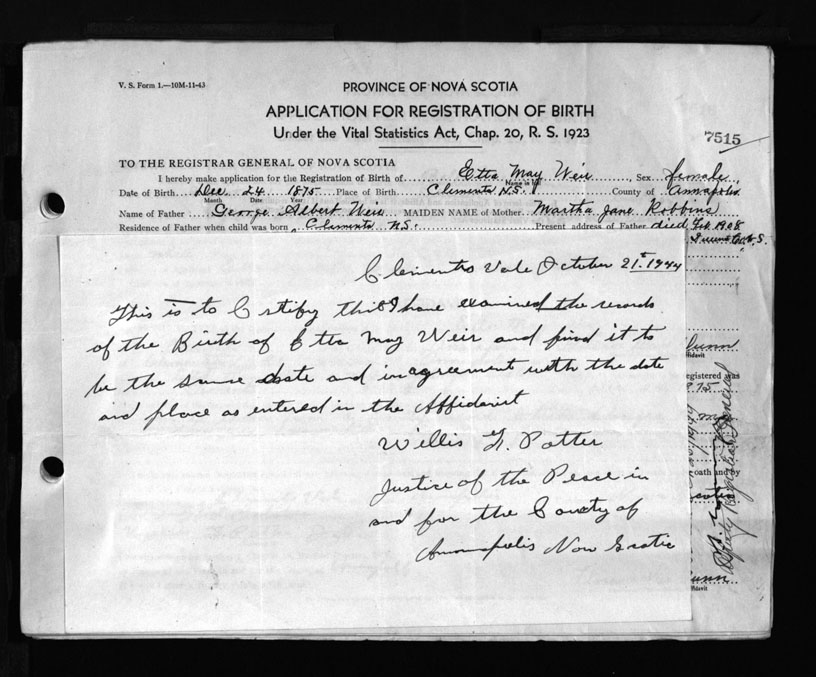 V. S. Form 1.—10M-11-43
PROVINCE OF NOVA SCOTIA
APPLICATION FOR REGISTRATION OF BIRTH
Under the Vital Statistics Act, Chap. 20, R. S. 1923
7515
TO THE REGISTRAR GENERAL OF NOVA SCOTIA
I hereby make application for the Registration of Birth of Etta May Weir Sex female
Name in full
Date of Birth Dec 24 1875 Place of Birth Clements N.S. County of Annapolis
Month Date Year
Name of Father George Albert Weir MAIDEN NAME of Mother Martha Jane Robbins
Residence of Father when child was born Clements N.S. Present address of Father died Feb. 1908
N.S.
Clements Vale October 21st 1944
This is to Certify that I have examined the records
of the Birth of Etta May Weir and find it to
be the same date and in agreement with the date
and place as entered in the Affidavit
Willis Potter
Justice of the Peace in
and for the County of
Annapolis Nova Scotia
unn
fidavit
egistered was
oath and by
Deputy Registrar General
unn
fidavit